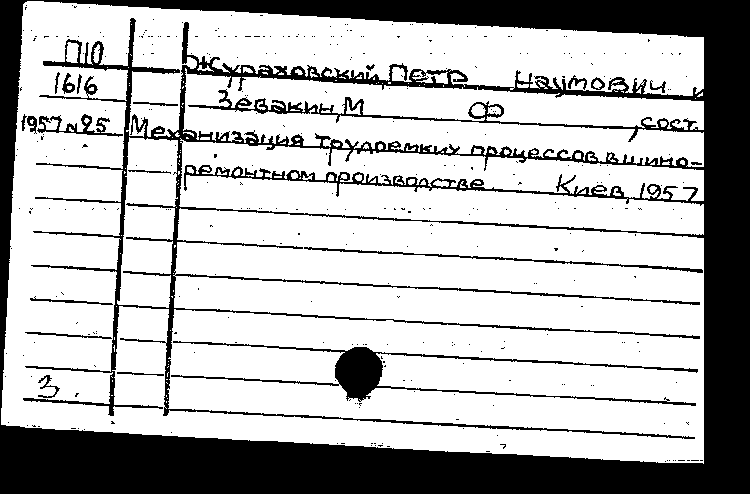 П10 Жураховский, Петр Наумович и
1616 Зевакин, М Ф , сост.
1957 № 25 Механизация трудоемких процессов в шино-
ремонтном производстве Киев, 1957
3.